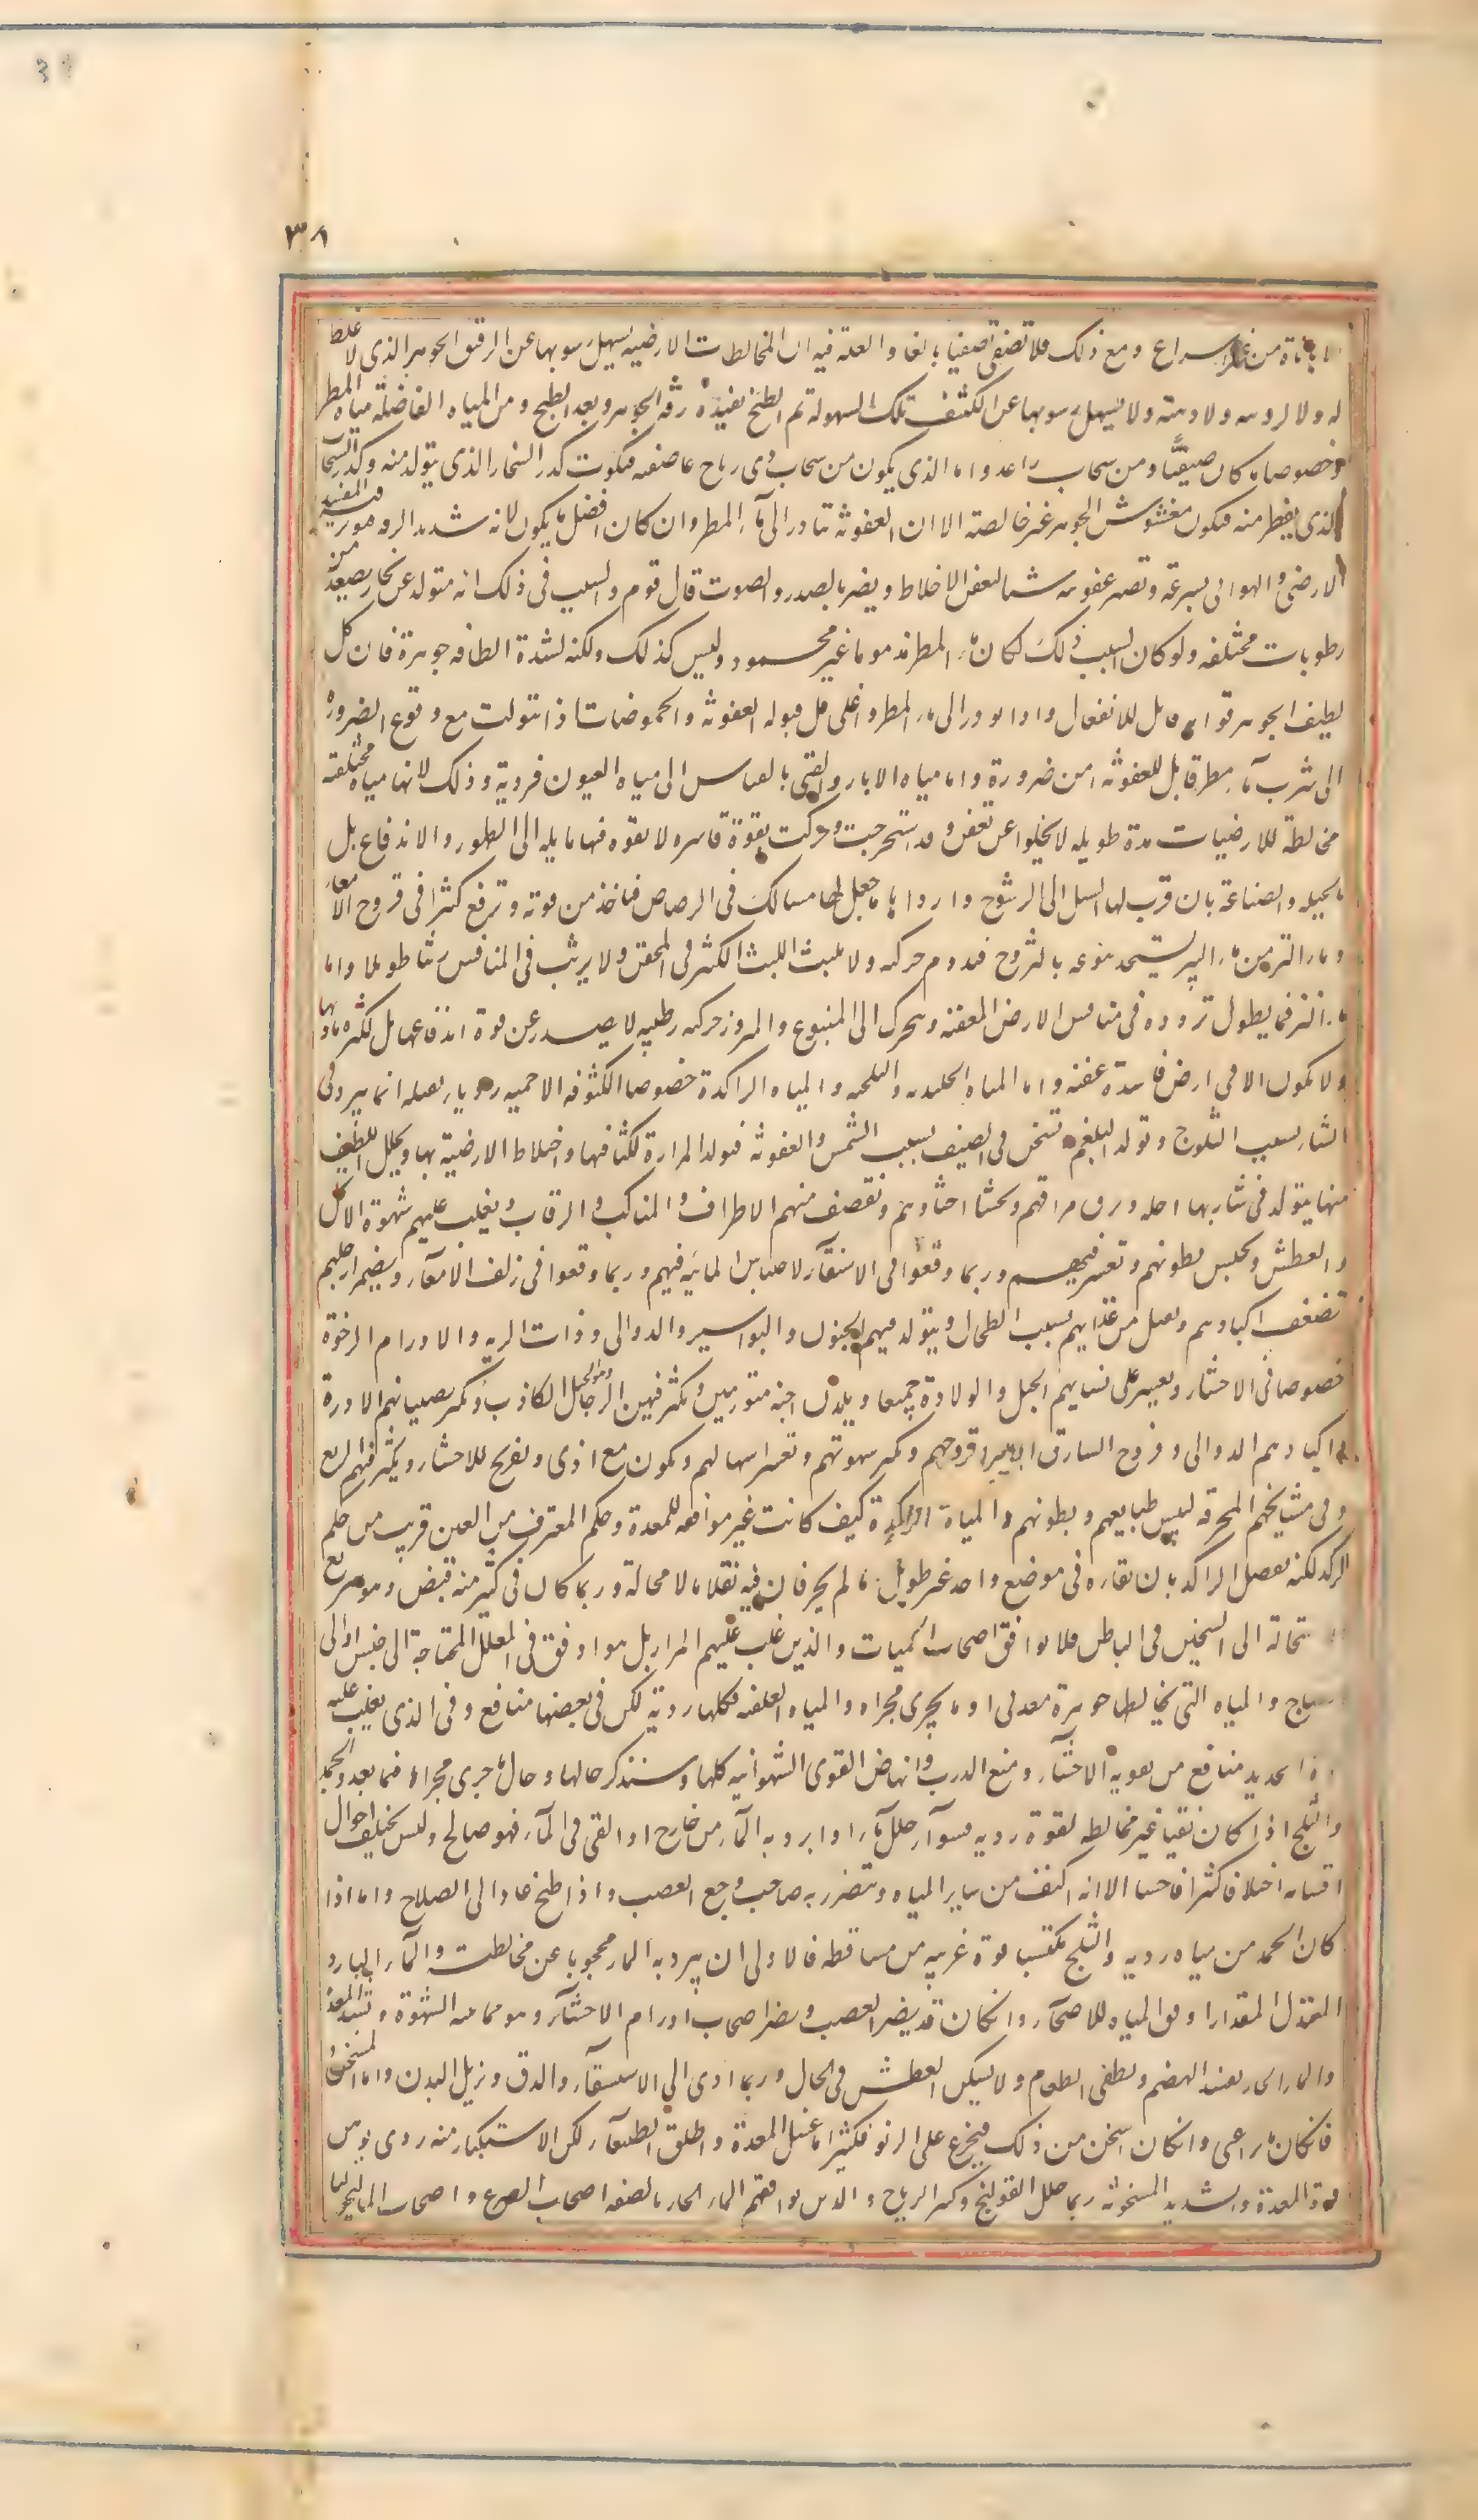 ٣٨
الا باناة من غير اسراع ومع ذلك فلا تصفى تصفيا بالغا والعلة فيه ان المخالطات الارضيه يسهل رسوبها عن الرقيق الجوهر الذى لا غلظ
له ولا لزوجه ولا دهنيه ولا يسهل رسوبها عن الكثيف تلك السهولة ثم الطبخ يفيده رقه الجوهر وبعد الطبخ ومن المياه الفاضلة مياه المطر
وخصوصا ما كان صيفيا ومن سحاب راعد واما الذى يكون من سحاب ذى رياح عاصفه فيكون كدر البخار الذى يتولد منه وكدر السحاب
الذى يقطر منه فيكون مغشوش الجوهر غير خالصه الا ان العفونه تبادر الى ماء المطر وان كان افضل ما يكون لانه شديد الرقه فيؤثر فيه المفسد
الارضى والهوائى بسرعة وتصير عفونته سببا لعفن الاخلاط ويضر بالصدر والصوت قال قوم والسبب فى ذلك انه متولد عن بخار يصعد من
رطوبات مختلفه ولو كان السبب ذلك لكان ماء المطر مذموما غير محمود وليس كذلك ولكنه لشدة الطافه جوهرة فان كل
لطيف الجوهر قوامه قابل للانفعال واذا بودر الى ماء المطر واغلى قل قبوله العفونه والحموضات اذا تنوولت مع وقوع الضروره
الى شرب ماء مطر قابل للعفونه امن ضرورة واما مياه الابار والقنى بالقياس الى مياه العيون فروية وذلك لانها مياه مختلفه
مخالطة للارضيات مدة طويله لا يخلوا عن تعفن وقد استخرجت وحركت بقوة قاسره لا بقوه فيها مايله الى الظهور والاندفاع بل
بالحيله والصناعة بان قرب لها السبل الى الرشوح واردأها ما جعل لها مسالك فى الرصاص فتاخذ من قوته وترفع كثيرا فى قروح الامعاء
وماء النز اردى من ماء البير يستجد نبوعه بالنزوح فيدوم حركته ولا يلبث اللبث الكثير فى المحقن ولا يريث فى المنافس ريثا طويلا واما
ماء النز فما يطول تردده فى منافس الارض العفنه ويتحرك الى المنبوع والبروز حركه بطيئه لا يصدر عن قوة اندفاعها بل لكثرة مادتها
ولا يكون الا فى ارض فاسدة عفنه واما المياه الجليديه والثلجيه والمياه الراكدة خصوصا المكشوفه الاجميه رديه ثقيله انما يبرد فى
الشتاء بسبب الثلوج وتولد البلغم وتسخن فى الصيف بسبب الشمس والعفونه فيولد المرارة لكثافتها واختلاط الارضية بها وتحلل اللطيف
منها يتولد فى شاربها اطحله وترق مراقهم وتحشا احشاؤهم وتقصف منهم الاطراف والمناكب والرقاب ويغلب عليهم شهوة الاكل
والعطش وتحتبس بطونهم وتعسر قيئهم وربما وقعوا فى الاستسقاء لاحتباس المائيه فيهم وربما وقعوا فى زلق الامعاء ويضمر ارجلهم
وتضعف اكبادهم وتقل من غذايهم بسبب الطحال ويتولد فيهم الجنون والبواسير والدوالى وذات الريه والاورام الرخوة
خصوصا فى الاحشاء ويعسر على نسايهم الحبل والولادة جميعا ويلدن اجنه متورمين ويكثر فيهن الرجا والحبل الكاذب ويكثر بصبيانهم الادرة
وبكبارهم الدوالى وقروح الساق لا يبرا قروحهم ويكثر شهوتهم وتعسر اسهالهم ويكون مع اذى وتقريح للاحشاء ويكثر فيهم الربع
وفى مشايخهم المحرقه ليبس طبايعهم وبطونهم والمياة الراكدة كيف كانت غير موافقه للمعدة وحكم المغترف من العين قريب من حكم
الراكد لكنه يفضل الراكد بان بقاره فى موضع واحد غير طويل ما لم يجر فان فيه ثقلا ما لا محالة وربما كان فى كثير منه قبض وهو سريع
الاستحالة الى التسخين فى الباطن فلا يوافق اصحاب الحميات والذين غلب عليهم المرار بل هو اوفق فى العلل المحتاجة الى حبس او الى
انضاج والمياه التى يخالطها جوهرة معدنى او ما يجرى مجراه والمياه العلقيه فكلها رديه لكن فى بعضها منافع وفى الذى يغلب عليه
قوة الحديد منافع من تقويه الاحشاء ومنع الذرب وانهاض القوى الشهوانيه كلها وسنذكر حالها وحال ما جرى مجراها فيما بعد والجمد
والثلج اذا كان نقيا غير مخالطه لقوة رديه فسواء حلل ماء او ابرد به الماء من خارج او القى فى الماء فهو صالح وليس يختلف احوال
اقسامه اختلافا كثيرا فاحشا الا انه اكثف من سائر المياه ويتضرر به صاحب وجع العصب واذا طبخ عاد الى الصلاح واما اذا
كان الجمد من مياه رديه والثلج مكتسبا قوة غريبه من مساقطه فالاولى ان يبرد به الماء محجوبا عن مخالطته والماء البارد
المعتدل المقدار اوفق المياه للاصحاء وانكان قد يضر العصب ويضر اصحاب اورام الاحشاء وهو مما ينبه الشهوة ويشد المعدة
والماء الحار يفسد الهضم ويطفى الطعام ولا يسكن العطش فى الحال وربما ادى الى الاستسقاء والدق ويذبل البدن واما المسخن
فانكان فاترا غثى وانكان اسخن من ذلك فتجرع على الريق فكثيرا ما غسل المعدة واطلق الطبيعة لكن الاستكثار منه ردى يوهن
قوة المعدة والشديد السخونه ربما حلل القولنج وكسر الرياح والذين يوافقهم الماء الحار بالصنعه اصحاب الصرع واصحاب الماليخوليا